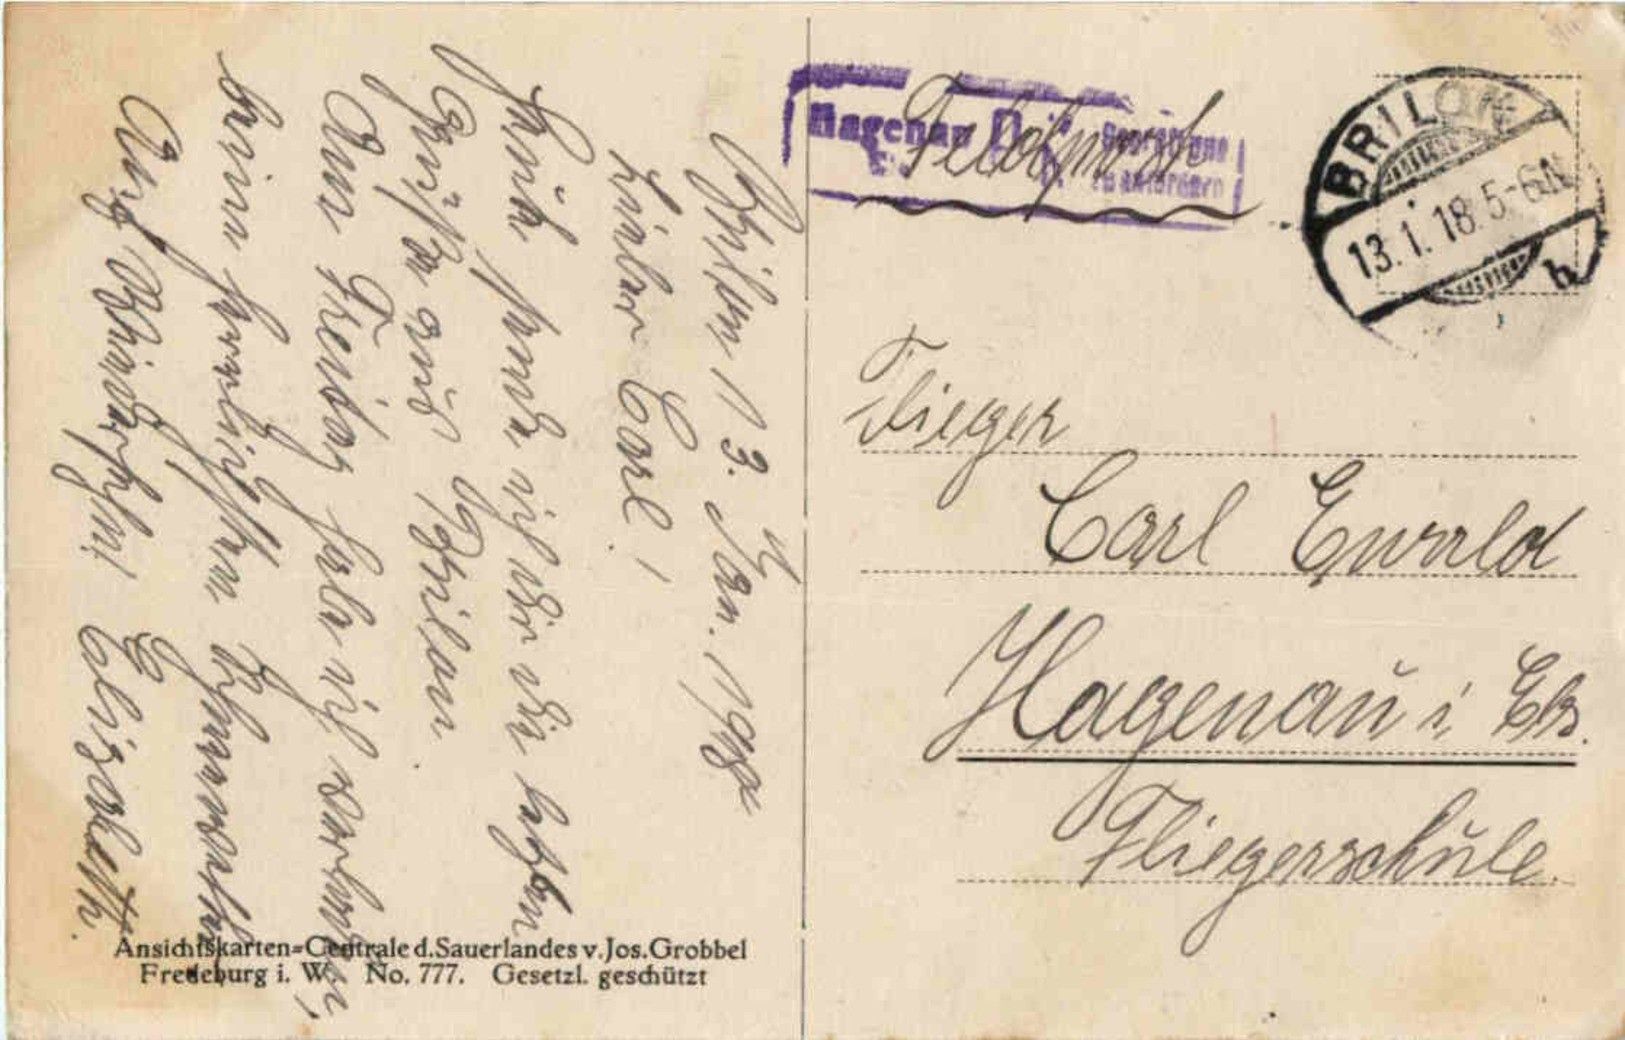 Brilon, 13. Jan. 1918
Lieber Carl!
Heute sende ich dir die letzten
Grüße aus Brilon
Am Freitag habe ich
deine herzlichsten
Auf Wiedersehn! Elisabeth.
Ansichtskarten=Centrale d. Sauerlandes v. Jos. Grobbel
Fredeburg i. W. No. 777. Gesetzl. geschützt
Feldpost
Hagenau
BRILON
13.1.18 5-6N
b
Flieger
Carl Ewald
Hagenau i. Els.
Fliegerschule.